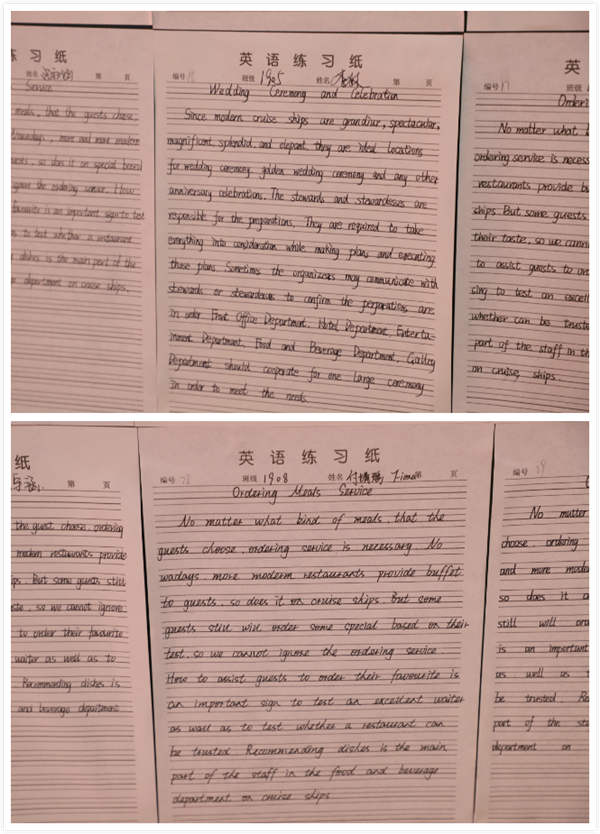 练习纸
姓名
第 页
Service
meals, that the guests choose,
Nowadays, more and more modern
guests, so does it on special based
ignore the ordering service. How
favourite is an important sign to test
as to test whether a restaurant
dishes is the main part of the
department on cruise ships.
英语练习纸
编号 班级 1905 姓名 第 页
Wedding Ceremony and Celebration
Since modern cruise ships are grandiur, spectacular,
magnificent, splendid, and elegant, they are ideal locations
for wedding ceremony, golden wedding ceremony and any other
anniversary celebrations. The stewards and stewardesses are
responsible for the preparations. They are required to take
everything into consideration while making plans and executing
those plans. Sometimes the organizers may communicate with
stewards or stewardesses to confirm the preparations are
in order Front Office Department, Hotel Department Enterta-
inment Department, Food and Beverage Department, Galley
Department should cooperate for one large ceremony
in order to meet the needs.
英
编号 班级
Orderi
No matter what
ordering service is necess
restaurants provide bu
ships. But some guests
their taste, so we cann
to assist guests to or
sing to test an excell
whether can be truste
part of the staff in th
on cruise, ships.
纸
第 页
the guest choose, ordering
modern restaurants provide
ips. But some guests still
ste, so we cannot ignore
to order their favourite
waiter as well as to
Recommanding dishes is
and beverage department
英语练习纸
编号 班级 1908 姓名 第 页
Ordering Meals Service
No matter what kind of meals, that the
guests choose, ordering service is necessary. No
wadays, more moderm restaurants provide buffet
to guests, so does it on cruise ships. But some
guests still will order some special based on their
test, so we cannot ignore the ordering service
How to assist guests to order their favourite is
an important sign to test an excellent waiter
as well as to test whether a restaurant can
be trusted Recommending dishes is the main
part of the staff in the food and beverage
department on cruise ships
编号
No matter
choose, ordering
and more mode
so does it o
still will ord
is an important
as well as t
be trusted. Re
part of the sta
department on